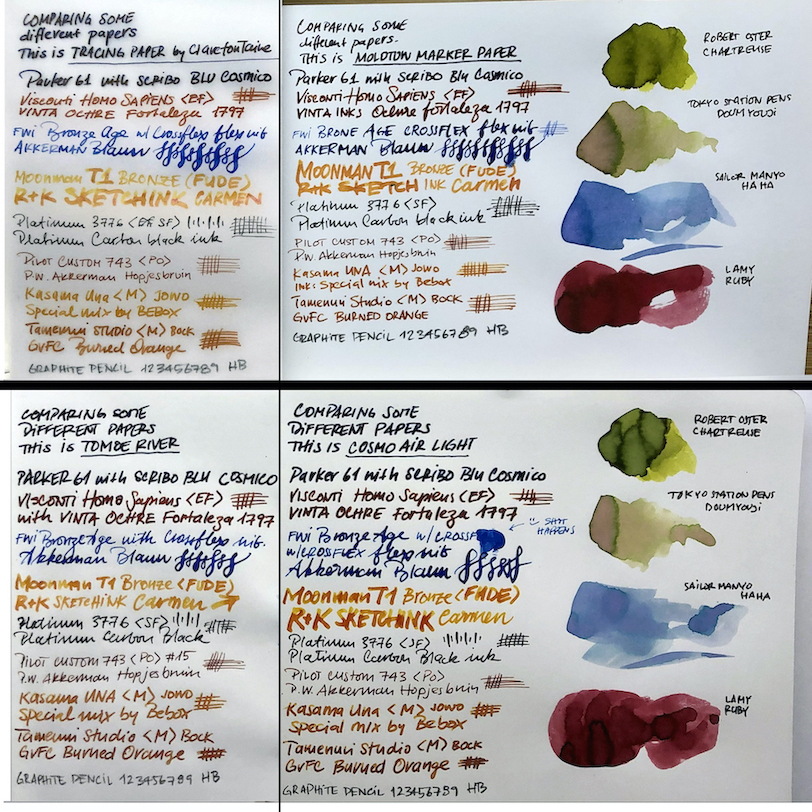 COMPARING SOME
different papers
This is TRACING PAPER by Clairefontaine
Parker 61 with SCRIBO BLU COSMICO
Visconti Homo Sapiens <EF>
VINTA OCHRE Fortaleza 1797
FWI Bronze Age w/ Crossflex flex nib
AKKERMAN Blauw
Moonman T1 BRONZE (FUDE)
R+K SKETCHINK CARMEN
Platinum 3776 SF>
Platinum Carbon black ink
Pilot Custom 743 <PO>
P.W. Akkerman Hopjesbruin
Kasama Una <M> JOWO
Special mix by Bebox
Tamenuri Studio <M> BOCK
GvFC Burned Orange
GRAPHITE PENCIL 123456789 HB
COMPARING SOME
different papers.
This is MOLOTOW MARKER PAPER
Parker 61 with SCRIBO Blu Cosmico
Visconti Homo Sapiens <EF>
VINTA INKS Ochre fortaleza 1797
FWI BRONE AGE CROSSFLEX flex nib
AKKERMAN Blauw
MOONMAN T1 BRONZE (FUDE)
R+K SKETCH INK Carmen
Platinum 3776 <SF>
Platinum Carbon black ink
PILOT CUSTOM 743 <PO>
P.W. Akkerman Hopjesbruin
Kasama UNA <M> JOWO
INK: Special mix by Bebox
Tamenuri Studio <M> BOCK
GvFC BURNED ORANGE
GRAPHITE PENCIL 123456789 HB
ROBERT OSTER
CHARTREUSE
TOKYO STATION PENS
DOUMYOUJI
SAILOR MANYO
HAHA
LAMY
RUBY
COMPARING SOME
DIFFERENT PAPERS
This is TOMOE RIVER
PARKER 61 with SCRIBO BLU COSMICO
VISCONTI Homo Sapiens <EF>
with VINTA OCHRE Fortaleza 1797
FWI Bronze Age with Crossflex nib.
Akkerman Blauw
Moonman T1 Bronze <FUDE)
R+K SKETCHINK Carmen
Platinum 3776 <SF>
Platinum Carbon Black
Pilot Custom 743 <PO> #15
P.W. Akkerman Hopjesbruin
Kasama UNA <M> JOWO
Special mix by Bebox
Tamenuri Studio <M> BOCK
GvFC Burned Orange
GRAPHITE PENCIL 123456789 HB
COMPARING SOME
DIFFERENT PAPERS
This is COSMO AIR LIGHT
Parker 61 with SCRIBO Blu Cosmico
VISCONTI Homo Sapiens <EF>
VINTA OCHRE Fortaleza 1797
FWI Bronze Age w/ CROSSF
w/CROSSFLEX flex nib
Akkerman Blauw
SHIT
HAPPENS
MOONMAN T1 BRONZE (FUDE)
R+K SKETCHINK Carmen
Platinum 3776 <SF>
Platinum Carbon Black ink
Pilot Custom 743 <PO>
P.W. Akkerman Hopjesbruin
Kasama Una <M> JOWO
Special mix by Bebox
Tamenuri Studio <M> BOCK
GvFC Burned Orange
GRAPHITE PENCIL 123456789 HB
ROBERT OSTER
CHARTREUSE
TOKYO STATION PENS
DOUMYOUJI
SAILOR MANYO
HAHA
LAMY
RUBY